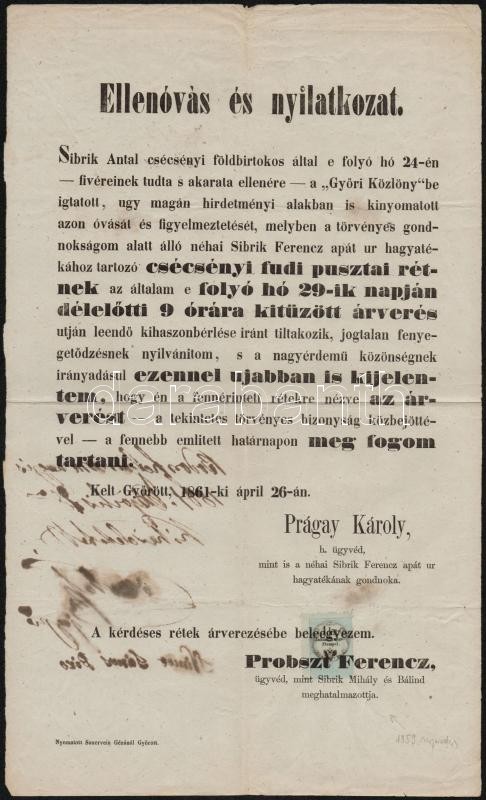 Ellenóvás és nyilatkozat.
Sibrik Antal csécsényi földbirtokos által e folyó hó 24-én
— fivéreinek tudta s akarata ellenére — a „Györi Közlöny“be
igtatott, ugy magán hirdetményi alakban is kinyomatott
azon óvását és figyelmeztetését, melyben a törvényes gond-
nokságom alatt álló néhai Sibrik Ferencz apát ur hagyaté-
kához tartozó csécsényi fudi pusztai rét-
nek az általam e folyó hó 29-ik napján
délelőtti 9 órára kitüzött árverés
utján leendő kihaszonbérlése iránt tiltakozik, jogtalan fenye-
getődzésnek nyilvánitom, s a nagyérdemü közönségnek
irányadásl ezennel ujabban is kijelen-
tem, hogy én a fennérintett rétekre nézve az ár-
verést — a tekintetes törvényes bizonyság közbejötté-
vel — a fennebb emlitett határnapon meg fogom
tartani.
Kelt Győrött, 1861-ki ápril 26-án.
Prágay Károly,
h. ügyvéd,
mint is a néhai Sibrik Ferencz apát ur
hagyatékának gondnoka.
A kérdéses rétek árverezésébe beleegyezem.
Probszt Ferencz,
ügyvéd, mint Sibrik Mihály és Bálind
meghatalmazottja.
Nyomatott Sauervein Gézánál Győrött.
darabanth